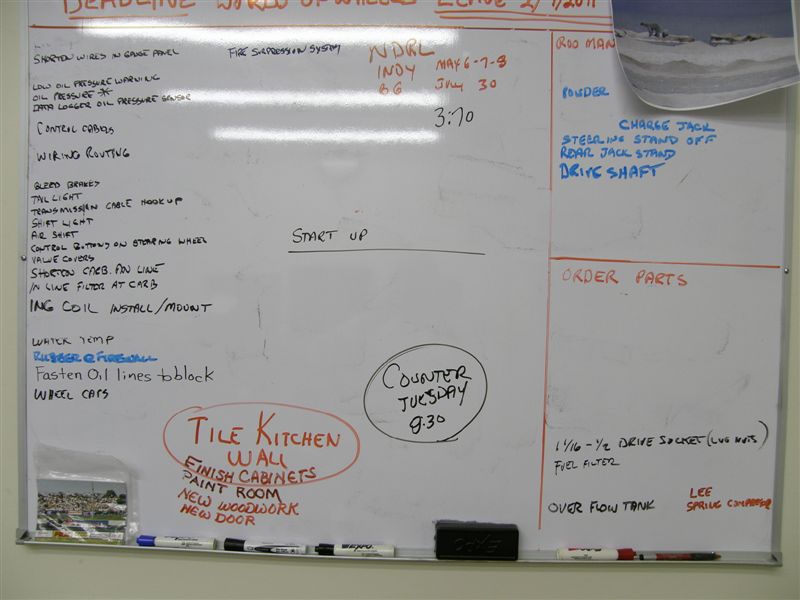 DEADLINE WORLD OF WHEELS LEAVE 2/9/2011
SHORTEN WIRES IN GAUGE PANEL
FIRE SUPRESSION SYSTEM
LOW OIL PRESSURE WARNING
OIL PRESSURE *
DATA LOGGER OIL PRESSURE SENSOR
CONTROL CABELS
WIRING ROUTING
BLEED BRAKES
TAIL LIGHT
TRANSMISSION CABLE HOOK UP
SHIFT LIGHT
AIR SHIFT
CONTROL BUTTONS ON STEARING WHEEL
VALVE COVERS
SHORTON CARB. AN LINE
IN LINE FILTER AT CARB
ING COIL INSTALL/MOUNT
WATER TEMP
RUBBER @ FIREWALL
Fasten Oil lines to block
WHEEL CAPS
NDRL
INDY MAY 6-7-8
BG JULY 30
3:70
START UP
COUNTER
TUESDAY
9:30
TILE KITCHEN
WALL
FINISH CABINETS
PAINT ROOM
NEW WOODWORK
NEW DOOR
ROD MAN
POWDER
CHARGE JACK
STEERING STAND OFF
REAR JACK STAND
DRIVE SHAFT
ORDER PARTS
1 1/16 - 1/2 DRIVE SOCKET (LUG NUTS)
FUEL FILTER
OVER FLOW TANK
LEE
SPRING COMPRESSOR
EXPO